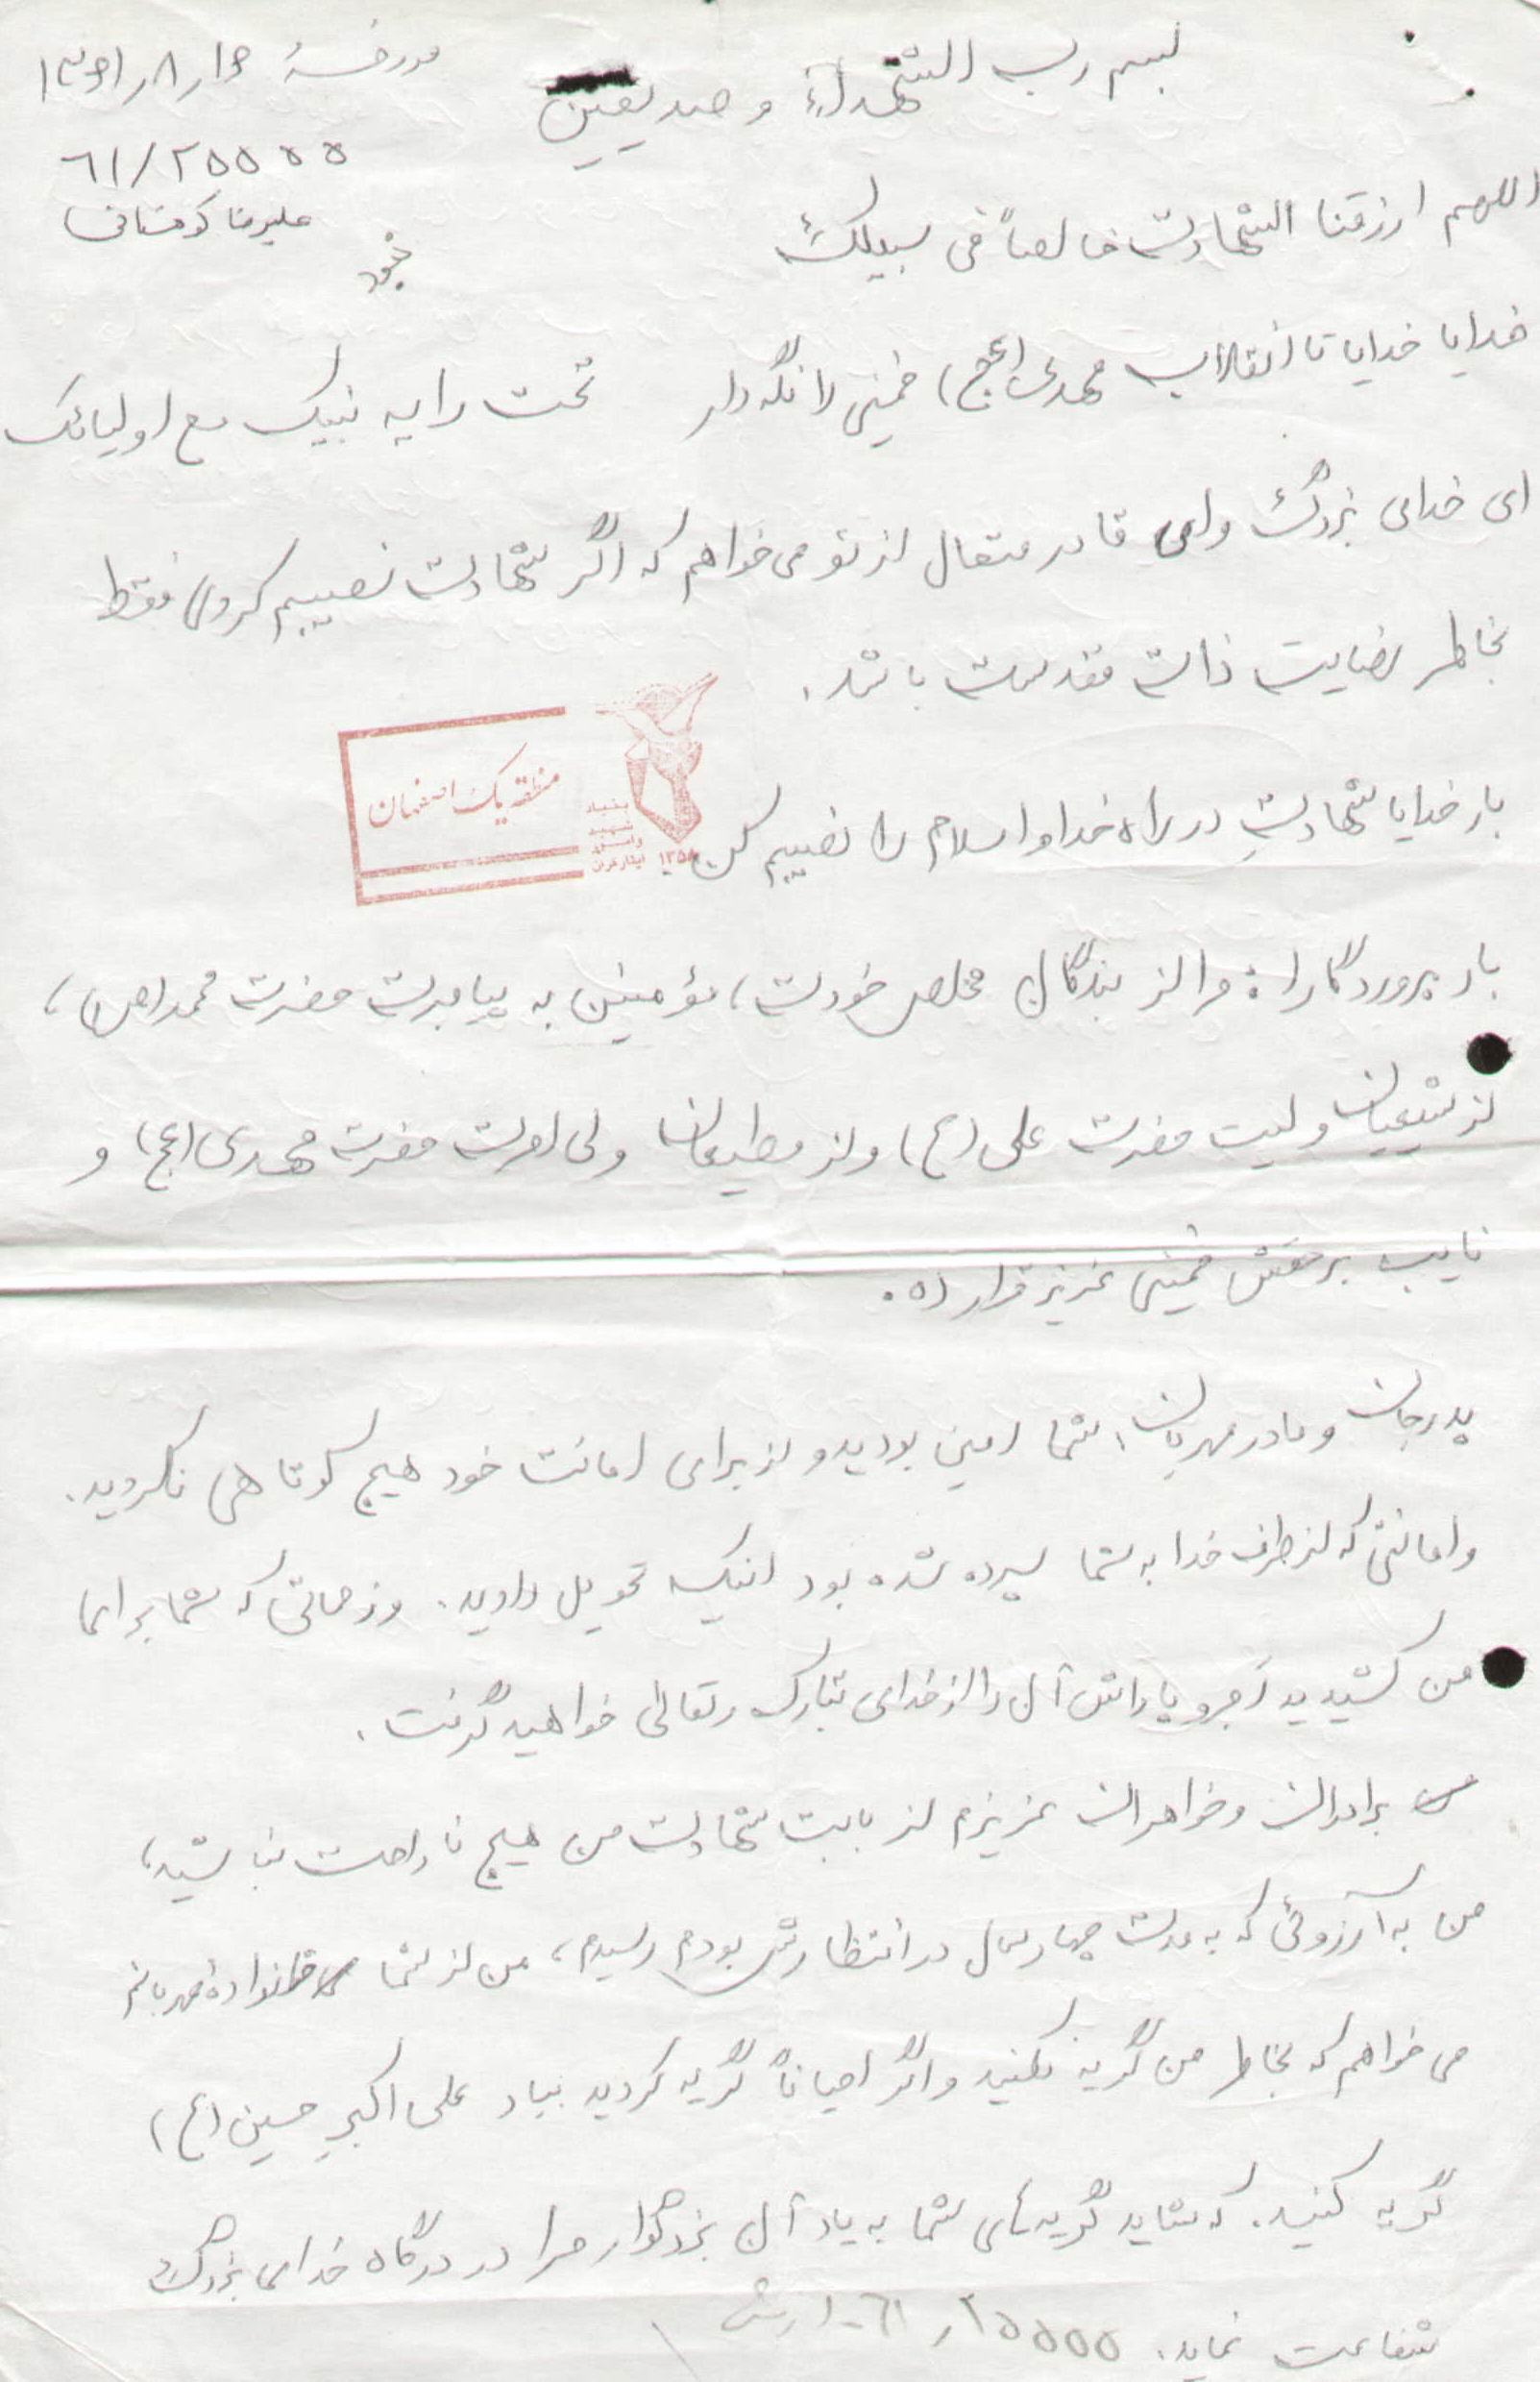 بسم رب الشهداء و صدیقین
مورخهٔ ۱۳۶۱/۸/۱۶
۶۱/۲۵۵۵۵
علیرضا
اللهم ارزقنا الشهادت خالصاً فی سبیلک
خدایا خدایا تا انقلاب مهدی (عج) خمینی را نگهدار تحت رایه نبیک مع اولیائک
ای خدای بزرگ و ای قادر متعال از تو می‌خواهم که اگر شهادت نصیبم کردی فقط
بخاطر رضایت ذات مقدست باشد.
بار خدایا شهادتِ در راه خدا و اسلام را نصیبم کن
منطقه یک اصفهان
بنیاد شهید و امور ایثارگران ۱۳۵۸
بار پروردگارا: مرا از بندگان مخلص خودت، مؤمنین به پیامبرت حضرت محمد (ص)،
از شیعیان ولیت حضرت علی (ع) و از مطیعان ولی امرت حضرت مهدی (عج) و
نایب برحقش خمینی عزیز قرار ده.
پدر جان و مادر مهربان، شما امین بودید و از برای امانت خود هیچ کوتاهی نکردید.
و امانتی که از طرف خدا به شما سپرده شده بود اینک تحویل دادید. و زحماتی که شما برای
من کشیدید اجر و پاداش آن را از خدای تبارک و تعالی خواهید گرفت.
برادران و خواهران عزیزم از بابت شهادت من هیچ ناراحت نباشید،
من به آرزوئی که به مدت چهار سال در انتظارش بودم رسیدم، من از شما خانواده مهربانم
می خواهم که بخاطر من گریه نکنید و اگر احیاناً گریه کردید بیاد علی اکبرِ حسین (ع)
گریه کنید. که شاید گریه‌های شما به یاد آن بزرگوار مرا در درگاه خدای بزرگ
شفاعت نماید. ۲۵۵۵۵